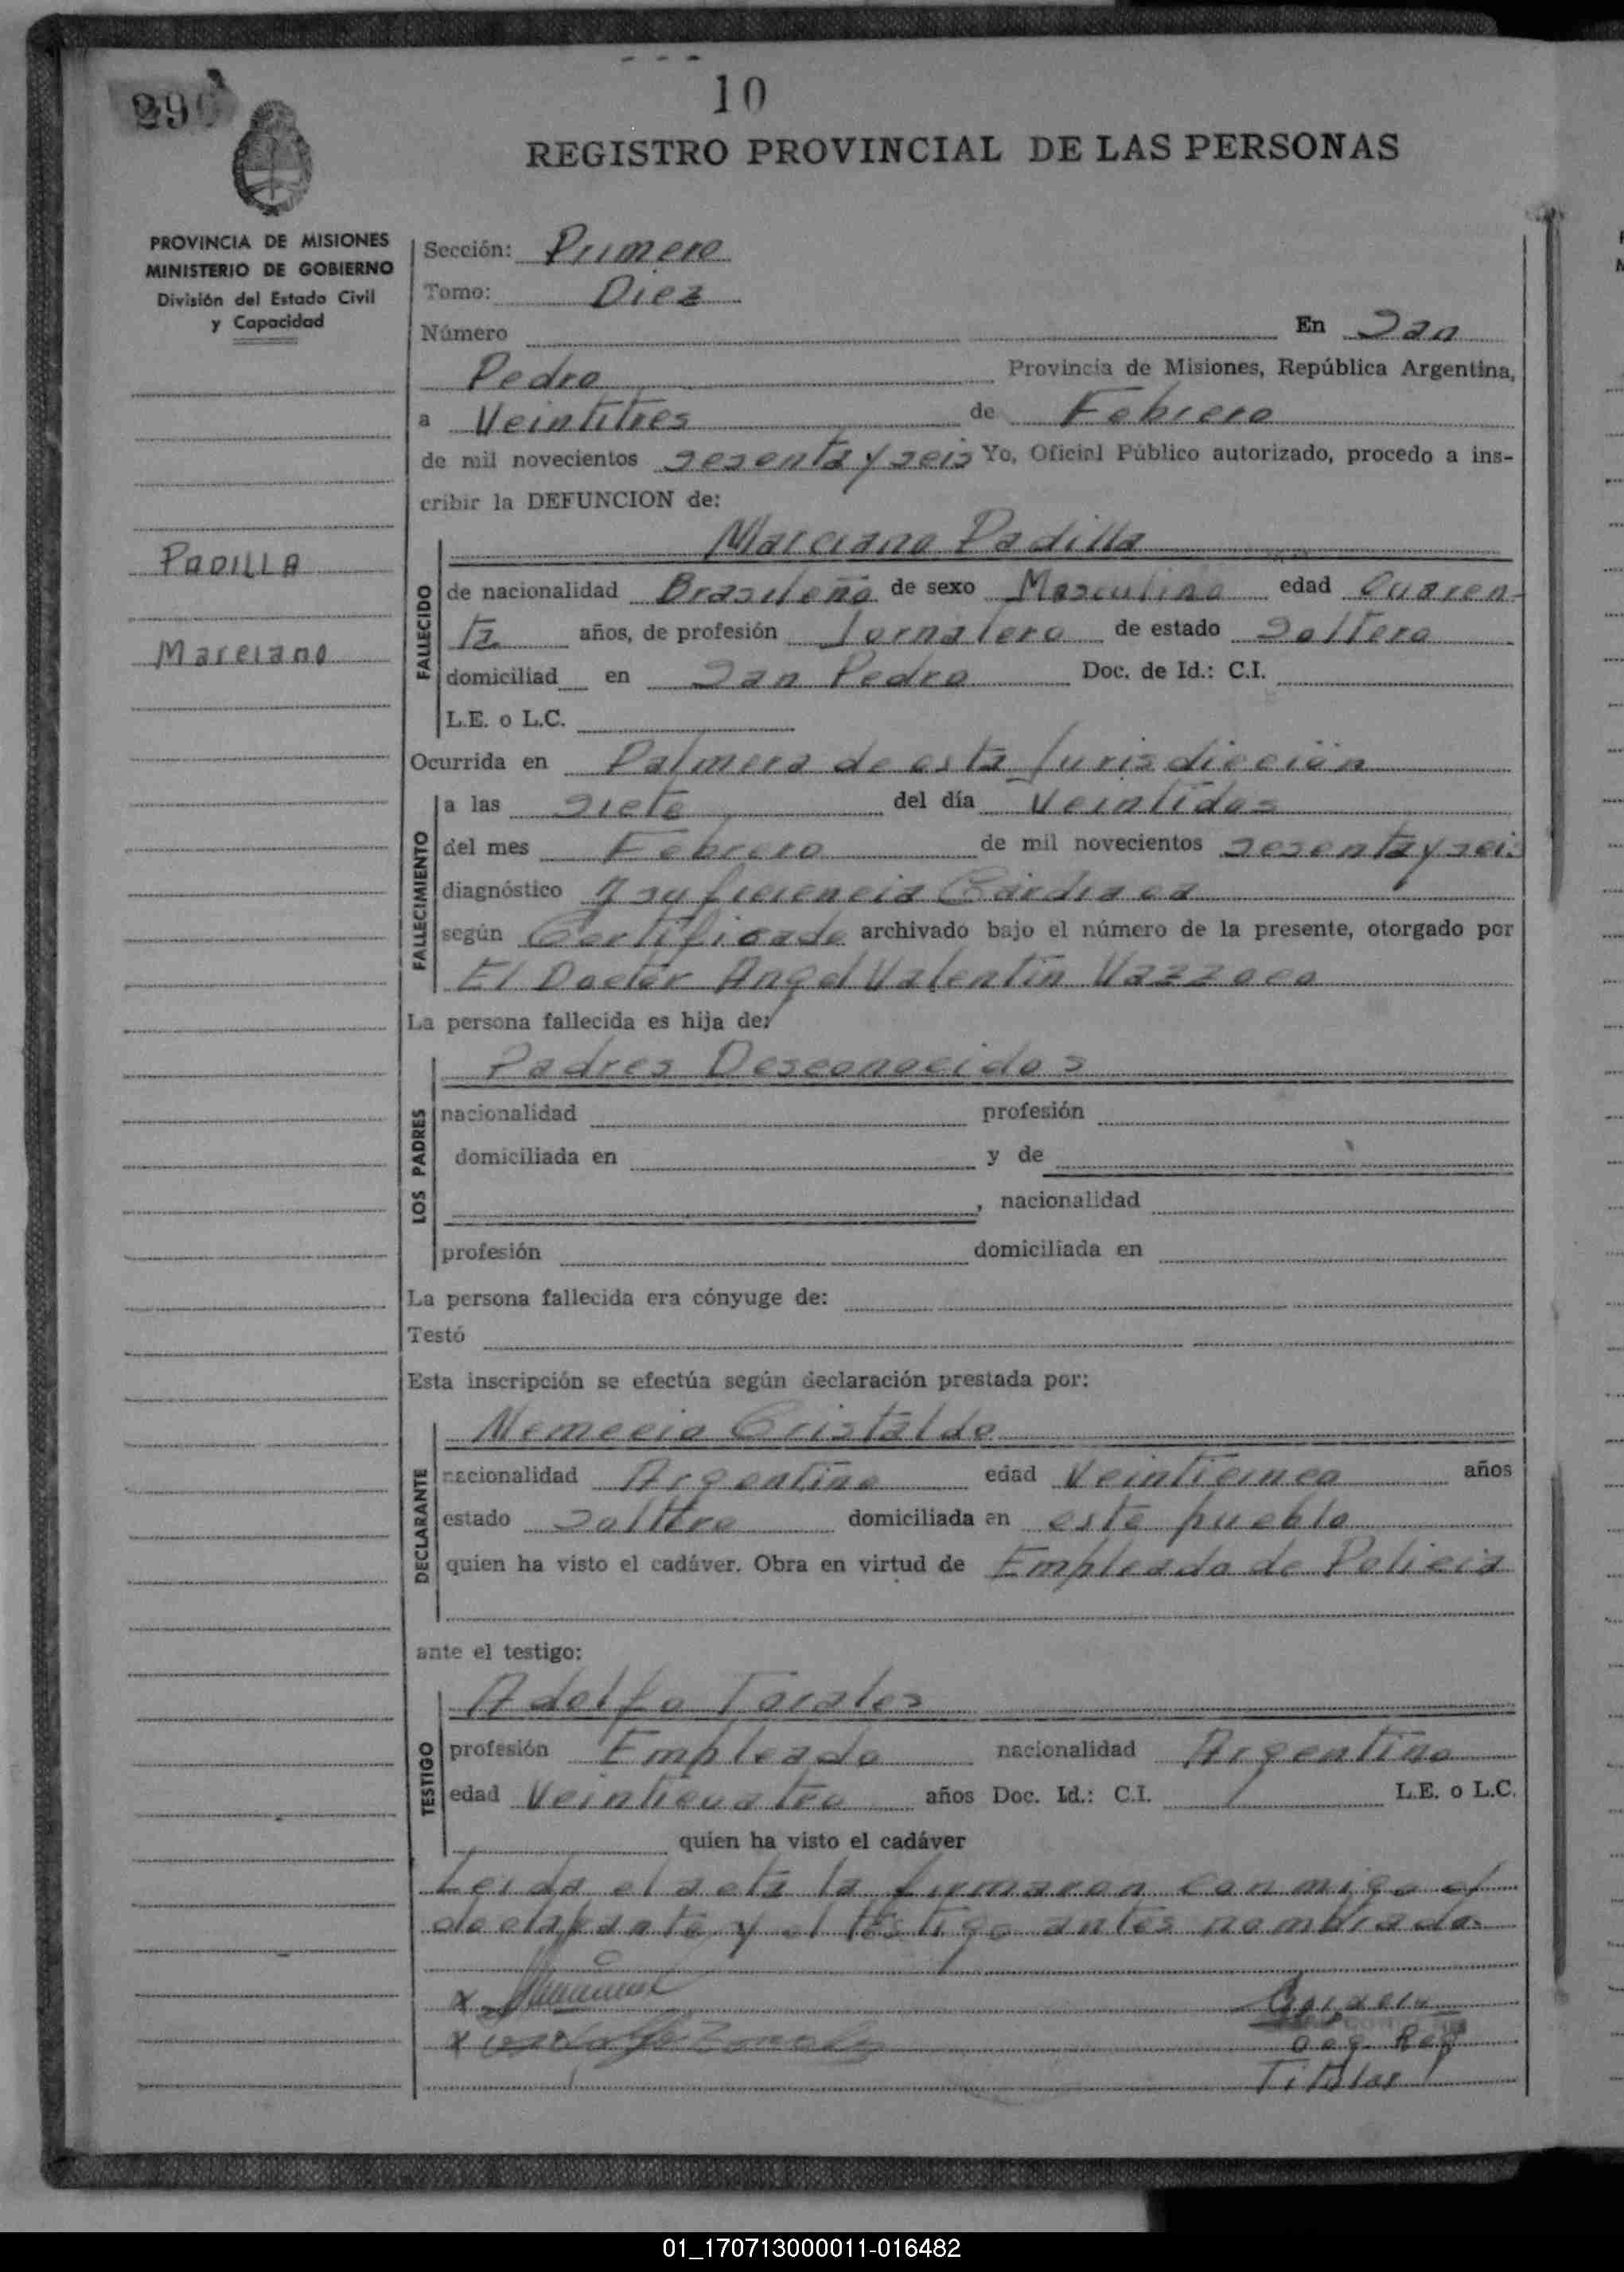 10
REGISTRO PROVINCIAL DE LAS PERSONAS
PROVINCIA DE MISIONES
MINISTERIO DE GOBIERNO
División del Estado Civil
y Capacidad
PADILLA
Marciano
Sección: Primera
Tomo: Diez
Número En San
Pedro Provincia de Misiones, República Argentina,
a Veintitres de Febrero
de mil novecientos sesenta y seis Yo, Oficial Público autorizado, procedo a ins-
cribir la DEFUNCION de:
Marciano Padilla
FALLECIDO
de nacionalidad Brasileña de sexo Masculino edad Cuaren-
ta años, de profesión Jornalero de estado Soltero
domiciliad en San Pedro Doc. de Id.: C.I.
L.E. o L.C.
Ocurrida en Palmera de esta Jurisdicción
FALLECIMIENTO
a las siete del día Veintidos
del mes Febrero de mil novecientos sesenta y seis
diagnóstico Insuficiencia Cardiaca
según Certificado archivado bajo el número de la presente, otorgado por
El Doctor Angel Valentín
La persona fallecida es hija de:
LOS PADRES
Padres Desconocidos
nacionalidad profesión
domiciliada en y de
, nacionalidad
profesión domiciliada en
La persona fallecida era cónyuge de:
Testó
Esta inscripción se efectúa según declaración prestada por:
DECLARANTE
Nemecio Cristaldo
nacionalidad Argentino edad Veinticinco años
estado Soltero domiciliada en este pueblo
quien ha visto el cadáver. Obra en virtud de Empleado de Policia
ante el testigo:
TESTIGO
Adolfo
profesión Empleado nacionalidad Argentino
edad Veinticuatro años Doc. Id.: C.I. L.E. o L.C.
quien ha visto el cadáver
Leida el acta la firmaron conmigo el
declarante y el testigo antes nombrado.
x
x
Titular
01_170713000011-016482